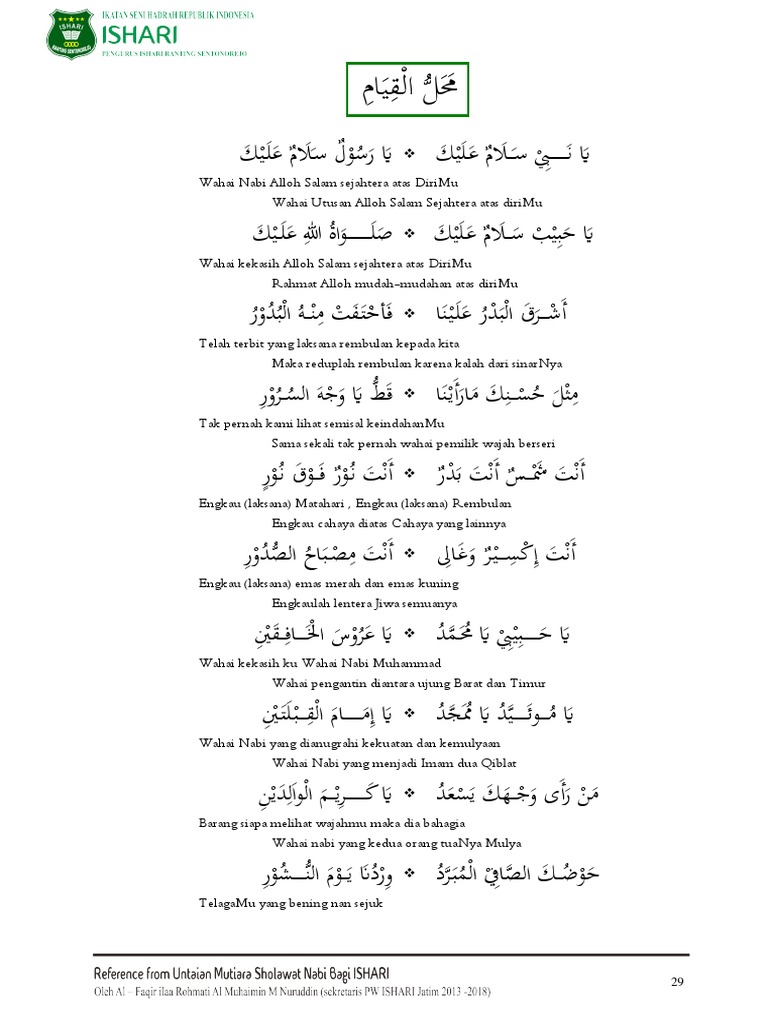 IKATAN SENI HADRAH REPUBLIK INDONESIA
ISHARI
PENGURUS ISHARI RANTING SENTONOREJO
ISHARI
RANTING SENTONOREJO
مَحَلُّ الْقِيَامِ
يَا نَـــبِيْ سَـلَامٌ عَلَيْكَ ❖ يَا رَسُوْلٌ سَلَامٌ عَلَيْكَ
Wahai Nabi Alloh Salam sejahtera atas DiriMu
Wahai Utusan Alloh Salam Sejahtera atas diriMu
يَا حَبِيْبْ سَـلَامٌ عَلَيْكَ ❖ صَلَـــوَاةُ اللهِ عَلَيْكَ
Wahai kekasih Alloh Salam sejahtera atas DiriMu
Rahmat Alloh mudah-mudahan atas diriMu
أَشْـرَقَ الْبَدْرُ عَلَيْنَا ❖ فَأحْتَفَتْ مِنْـهُ الْبُدُوْرُ
Telah terbit yang laksana rembulan kepada kita
Maka reduplah rembulan karena kalah dari sinarNya
مِثْلَ حُسْـنِكَ مَارَأَيْنَا ❖ قَطُّ يَا وَجْهَ السُـرُوْرِ
Tak pernah kami lihat semisal keindahanMu
Sama sekali tak pernah wahai pemilik wajah berseri
أَنْتَ شَمْـسٌ أَنْتَ بَدْرٌ ❖ أَنْتَ نُوْرٌ فَـوْقَ نُوْرٍ
Engkau (laksana) Matahari , Engkau (laksana) Rembulan
Engkau cahaya diatas Cahaya yang lainnya
أَنْتَ إِكْسِـيْرٌ وَغَالِى ❖ أَنْتَ مِصْبَاحُ الصُّدُوْرِ
Engkau (laksana) emas merah dan emas kuning
Engkaulah lentera Jiwa semuanya
يَا حَـــبِيْبِيْ يَا مُحَـمَّدُ ❖ يَا عَرُوْسَ الْخَـافِـقَيْنِ
Wahai kekasih ku Wahai Nabi Muhammad
Wahai pengantin diantara ujung Barat dan Timur
يَا مُـوئَـيَّدُ يَا مُمَجَّدُ ❖ يَا إِمَــامَ الْقِـبْلَتَيْنِ
Wahai Nabi yang dianugrahi kekuatan dan kemulyaan
Wahai Nabi yang menjadi Imam dua Qiblat
مَنْ رَأَى وَجْـهَكَ يَسْعَدُ ❖ يَا كَـــرِيْـمَ الْوَالِدَيْنِ
Barang siapa melihat wajahmu maka dia bahagia
Wahai nabi yang kedua orang tuaNya Mulya
حَوْضُـكَ الصَّافِيْ الْمُبَرَّدُ ❖ وِرْدُنَا يَـوْمَ النُّـــشُوْرِ
TelagaMu yang bening nan sejuk
Reference from Untaian Mutiara Sholawat Nabi Bagi ISHARI
Oleh Al – Faqir ilaa Rohmati Al Muhaimin M Nuruddin (sekretaris PW ISHARI Jatim 2013 -2018)
29